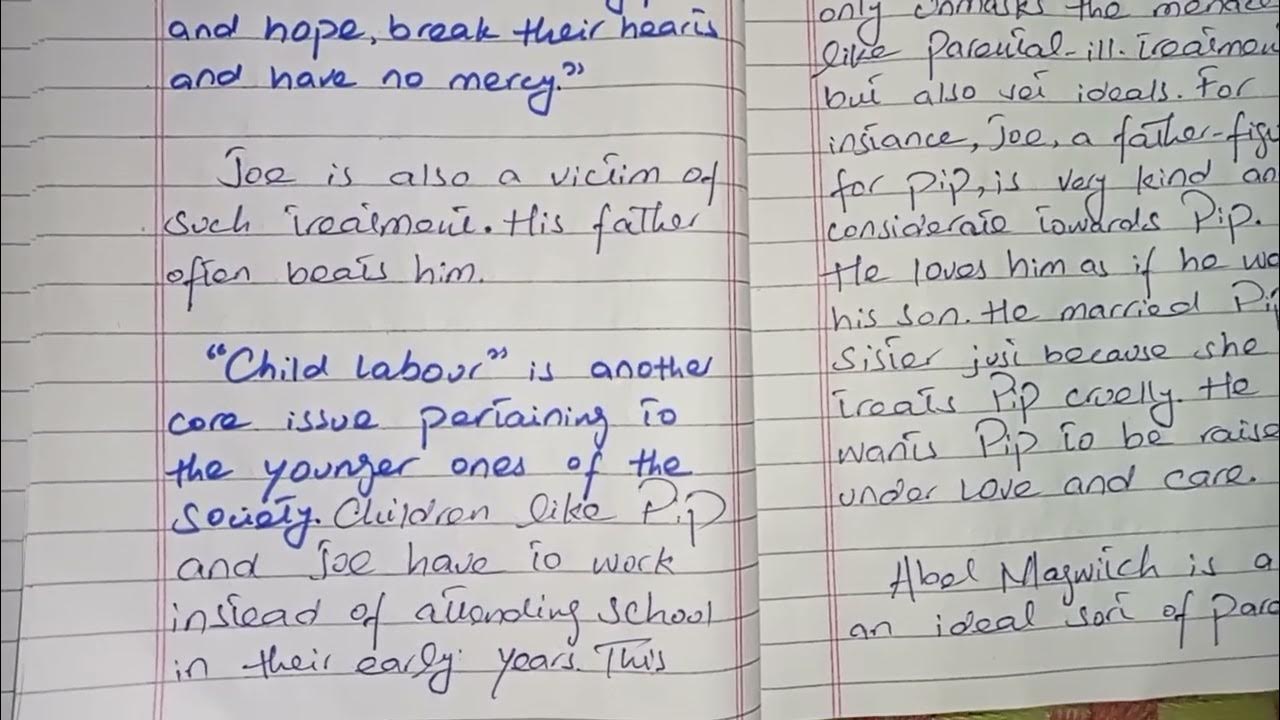 and hope, break their hearts
and have no mercy."
Joe is also a victim of
such treatment. His father
often beats him.
"Child Labour" is another
core issue pertaining to
the younger ones of the
society. Children like Pip
and Joe have to work
instead of attending school
in their early years. This
only unmasks the menace
like Parental-ill-treatmen
but also set ideals. For
instance, Joe, a father-figu
for Pip, is very kind an
considerate towards Pip.
He loves him as if he wa
his son. He married Pi
sister just because she
treats Pip cruelly. He
wants Pip to be raise
under love and care.
Abel Magwitch is a
an ideal sort of pare